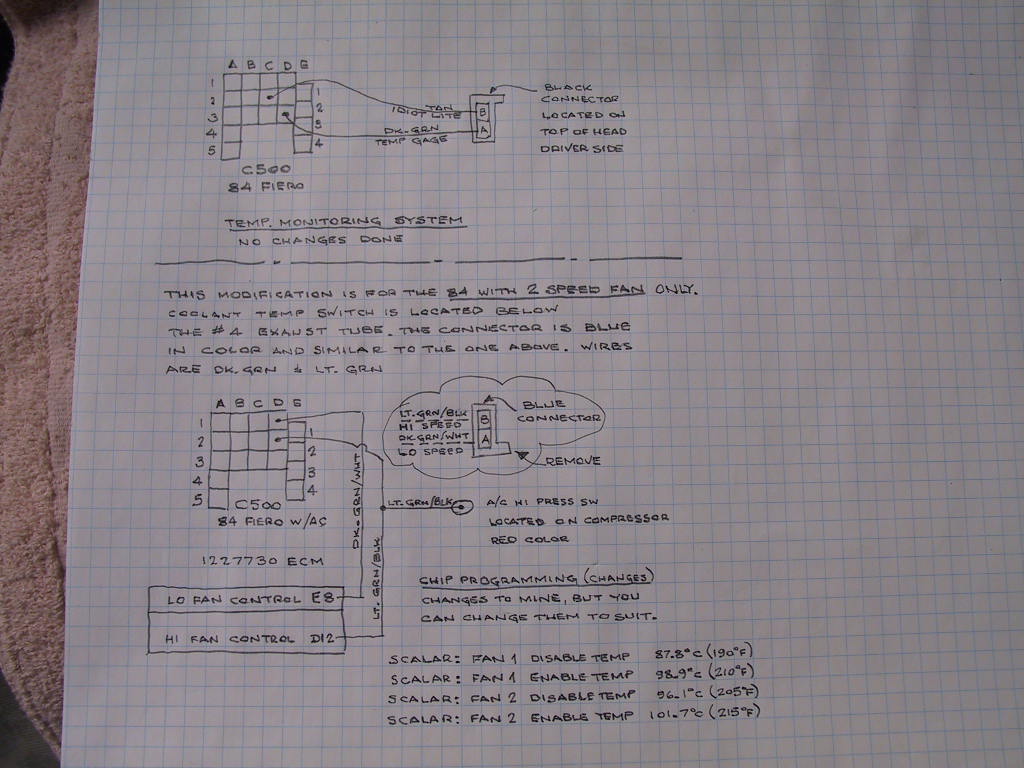 A B C D E
1
2
3
4
5
1
2
3
4
TAN
IDIOT LITE
DK. GRN
TEMP GAGE
B
A
BLACK
CONNECTOR
LOCATED ON
TOP OF HEAD
DRIVER SIDE
C500
84 FIERO
TEMP. MONITORING SYSTEM
NO CHANGES DONE
THIS MODIFICATION IS FOR THE 84 WITH 2 SPEED FAN ONLY.
COOLANT TEMP SWITCH IS LOCATED BELOW
THE #4 EXAUST TUBE. THE CONNECTOR IS BLUE
IN COLOR AND SIMILAR TO THE ONE ABOVE. WIRES
ARE DK. GRN & LT. GRN
A B C D E
1
2
3
4
5
1
2
3
4
C500
84 FIERO W/AC
LT. GRN/BLK
HI SPEED
DK. GRN/WHT
LO SPEED
B
A
BLUE
CONNECTOR
REMOVE
DK. GRN/WHT
LT. GRN/BLK
LT. GRN/BLK
A/C HI PRESS SW
LOCATED ON COMPRESSOR
RED COLOR
1227730 ECM
LO FAN CONTROL E8
HI FAN CONTROL D12
CHIP PROGRAMMING (CHANGES)
CHANGES TO MINE, BUT YOU
CAN CHANGE THEM TO SUIT.
SCALAR: FAN 1 DISABLE TEMP 87.8°C (190°F)
SCALAR: FAN 1 ENABLE TEMP 98.9°C (210°F)
SCALAR: FAN 2 DISABLE TEMP 96.1°C (205°F)
SCALAR: FAN 2 ENABLE TEMP 101.7°C (215°F)